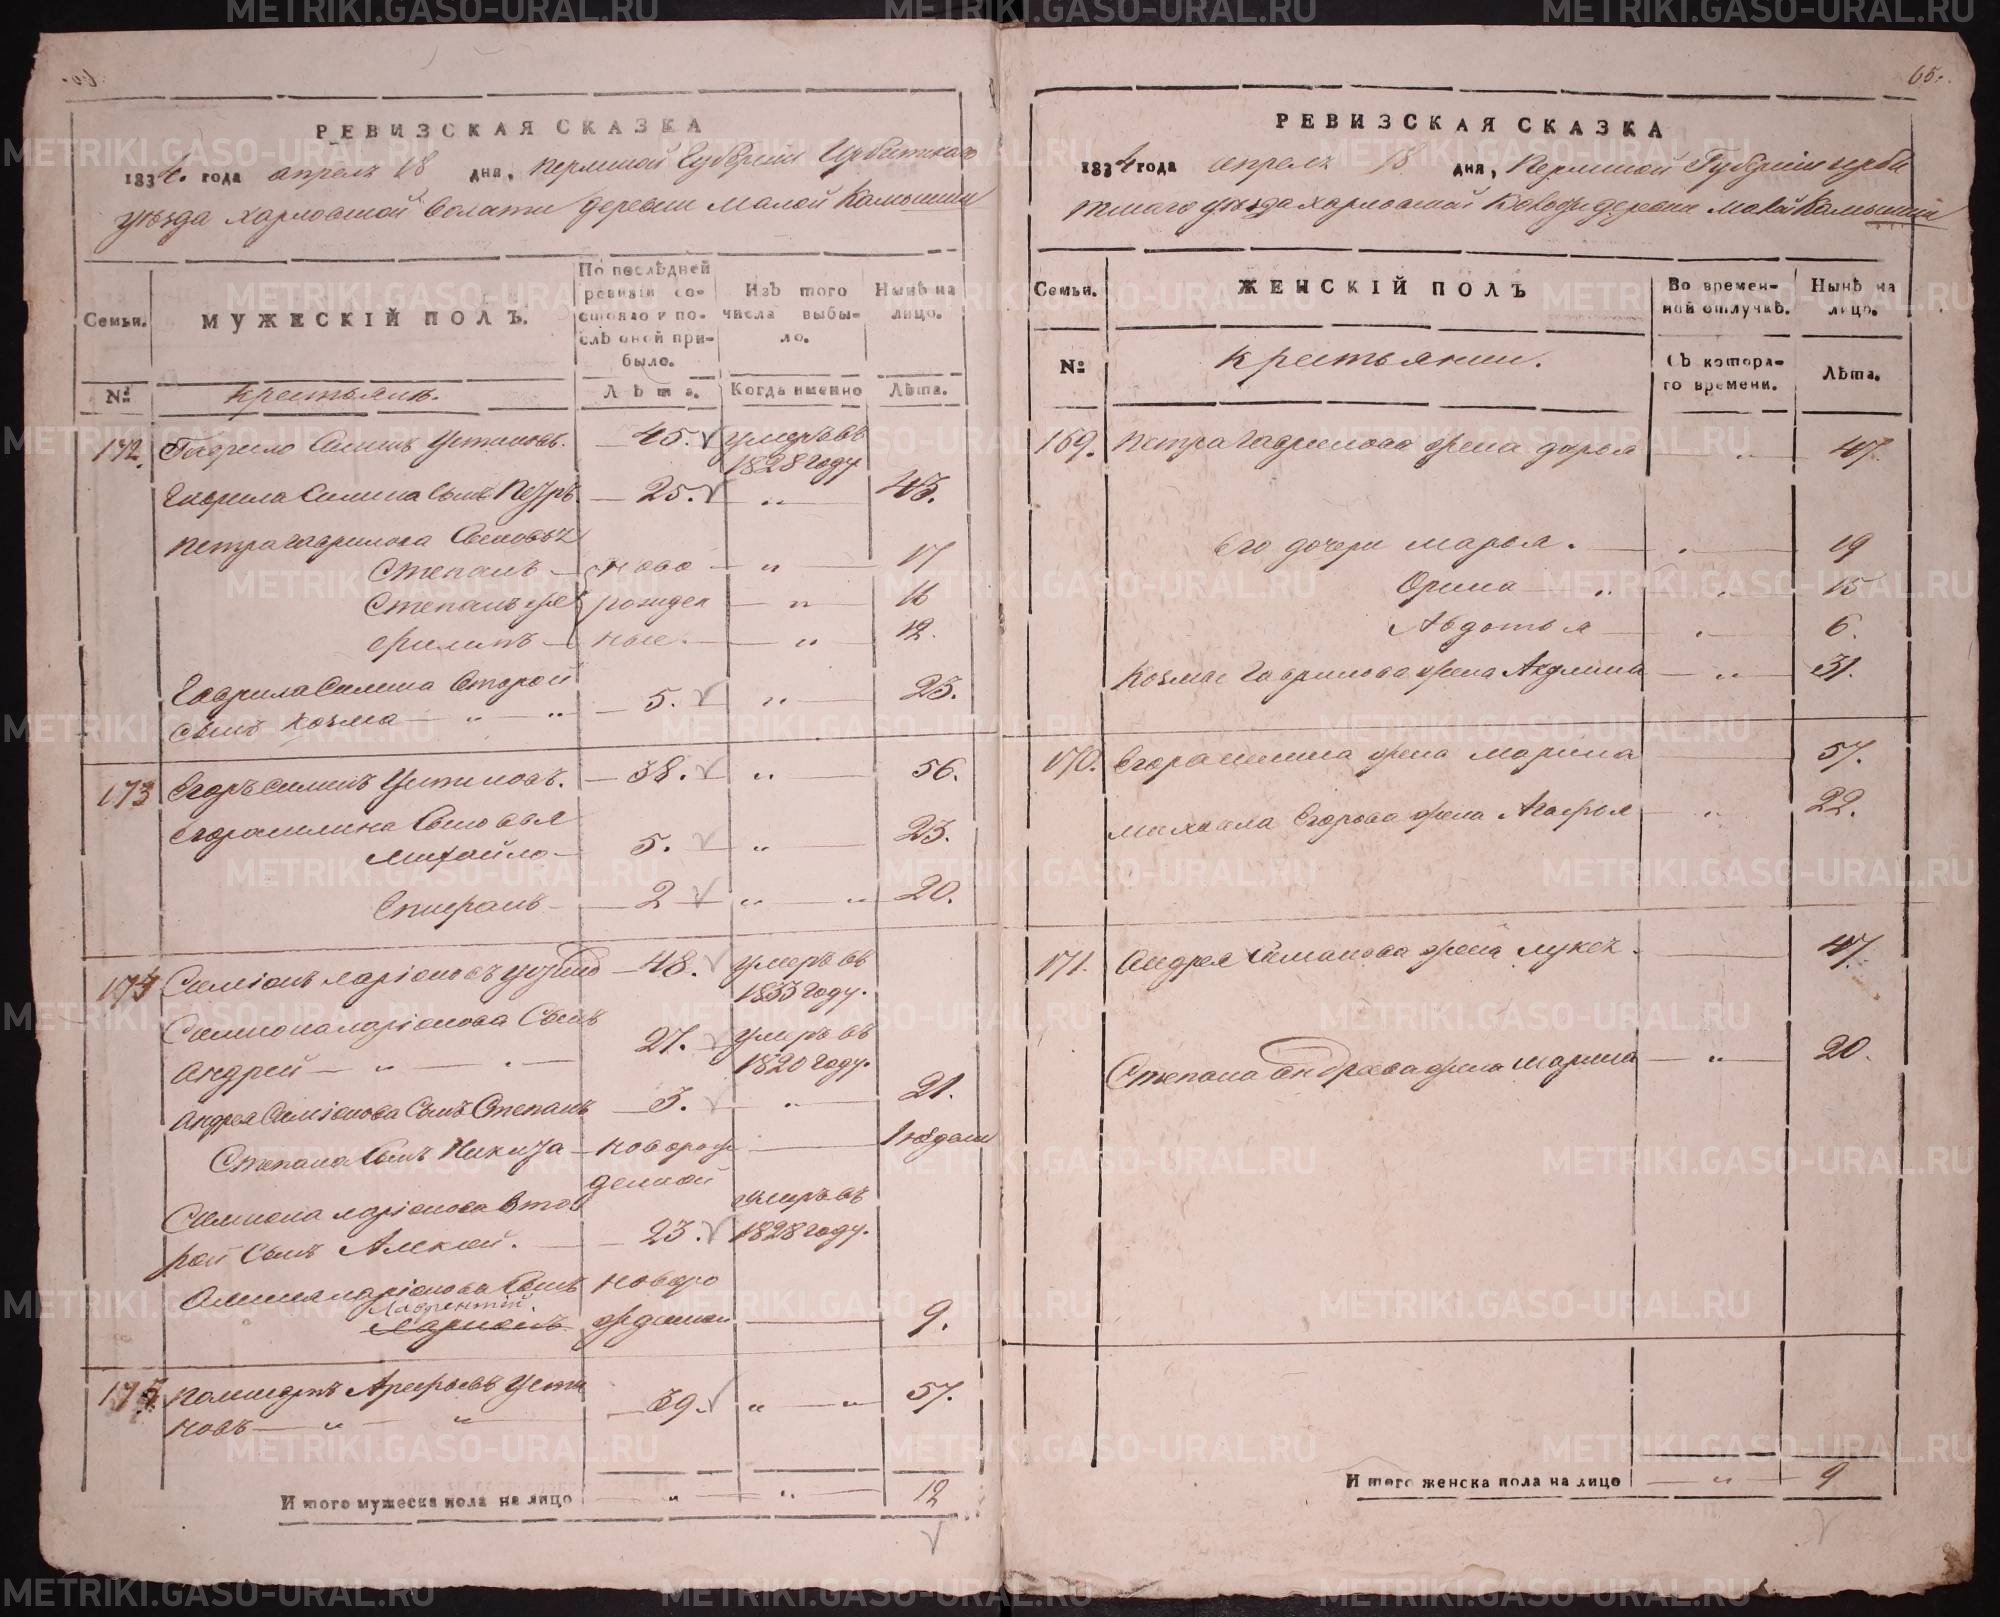 65.
РЕВИЗСКАЯ СКАЗКА
1834 года апреля 18 дня, Пермской Губернiи Ирбитскаго
уѣзда Харловской Волости деревни Малой Камышки
Семьи.
МУЖЕСКIЙ ПОЛЪ.
По послѣдней ревизiи состояло и послѣ оной прибыло.
Изъ того числа выбыло.
Нынѣ на лицо.
№
Крестьянъ.
Лѣта.
Когда именно
Лѣта.
172. Гаврило Силинъ Устиновъ. 45. умеръ въ
1828 году
Гаврила Силина сынъ Петръ 25. 43.
Петра Гаврилова сыновья
Степанъ ново 17
Степанъ же рожден 16
Филипъ ные. 12.
Гаврила Силина второй
сынъ Козма 5. 23.
173 Егоръ Силинъ Устиновъ. 38. 56.
Егора Силина сыновья
Михайло 5. 23.
Епифанъ 2 20.
174 Симiонъ Ларiоновъ 48. умеръ въ
1833 году.
Симиона Ларiонова сынъ
Андрей 27. умеръ въ
1820 году.
Андрея Симiонова сынъ Степанъ 3. 21.
Степана сынъ Никита новорож
денной
Симиона Ларiонова втов
рой сынъ Алексей. 23. умеръ въ
1828 году.
Ларiонова сынъ новоро
Лаврентiй.
жденной 9.
175 Арефьевъ Усти
новъ 39. 57.
Итого мужеска пола на лицо 12
РЕВИЗСКАЯ СКАЗКА
1834 года апреля 18 дня, Пермской Губернiи Ирби
тскаго уѣзда Харловской Волости деревни Малой Камышки
Семьи.
ЖЕНСКIЙ ПОЛЪ
Во временной отлучкѣ.
Нынѣ на лицо.
№
Крестьянки.
Съ котораго времени.
Лѣта.
169. Петра Гаврилова жена Дарья 47.
Его дочери Марья. 19
Орина 15
Авдотья 6.
Козмы Гаврилова жена Акулина 31.
170. Егора Силина жена Марина 57.
Михаила Егорова жена Агафья 22.
171. Андрея Симанова жена 47.
Степана Андреева жена Марина 20.
Итого женска пола на лицо 9
METRIKI.GASO-URAL.RU